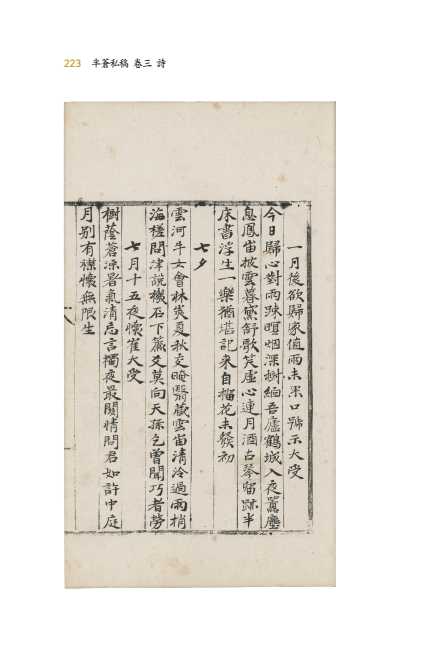 223 半蒼私稿 卷三 詩
一月後欲歸家值雨未果口號示大受
今日歸心對雨踈暝烟深樹緬吾廬鶴城入夜囂塵
息鳳笛披雲暮黛舒歌笑虛心連月酒古琴留跡半
床書浮生一樂猶堪記來自榴花未發初
七夕
雲河牛女會林爽夏秋交晻翳藏雲笛清泠過雨梢
海槎問津說機石下簾爻莫向天孫乞曾聞巧者勞
七月十五夜懷崔大受
樹蔭蒼凉暑氣清忘言獨夜最關情問君如許中庭
月別有襟懷無限生